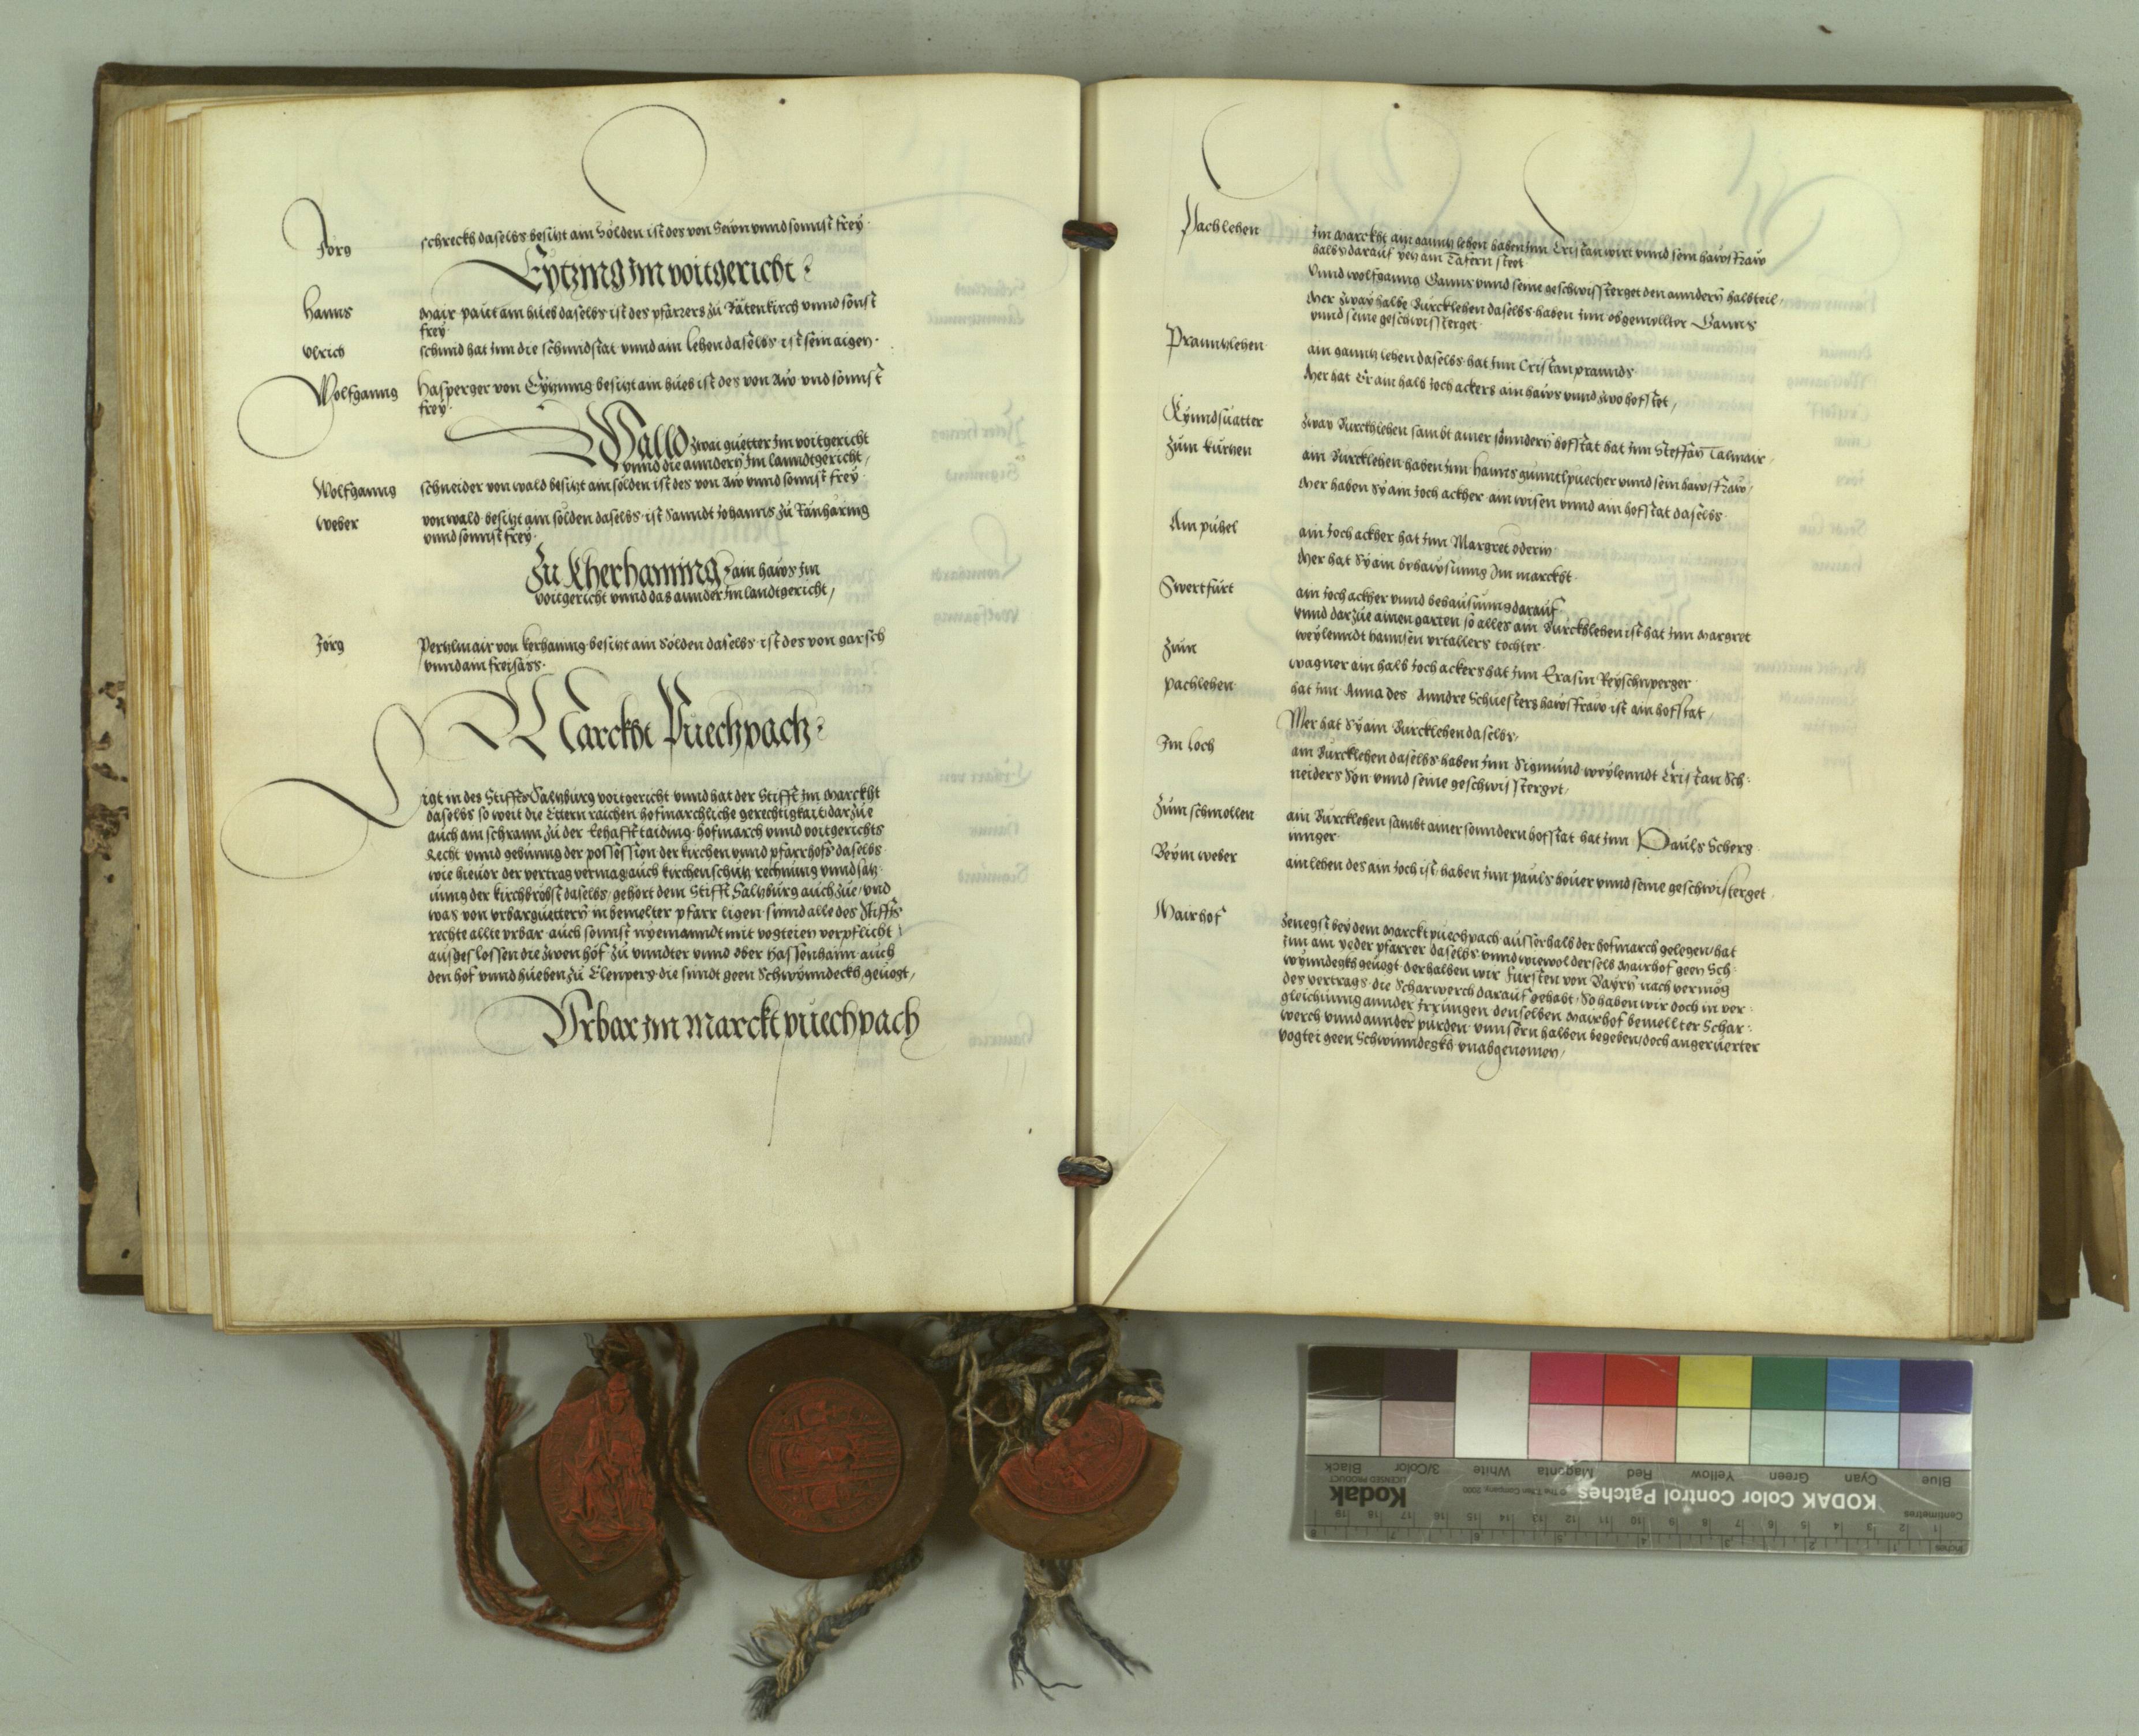 Jorg schreckh daselbs besitzt ain Sölden ist des von Sewn vnnd sonnst frey ·
Eytzing im voitgericht :
Hanns Mair paut ain hueb daselbs ist des pfarrers zu Tätenkirch vnnd sonst
frey ·
Vlrich schmid hat jnn die schmidstat vnnd ain lehen daselbs · ist sein aigen ·
Wolfganng Hasperger von Eytzinng besitzt ain hueb ist des von Aw vnd sonnst
frey ·
Walld zwai guetter jm voitgericht
vnnd die anndern jm lanndtgericht /
Wolfganng schneider von wald besitzt ain sölden ist des von Aw vnnd sonnst frey ·
Weber von wald besitzt ain sölden daselbs · ist Sanndt Johanns zu Tanharing
vnnd sonnst frey ·
Zu Kherhaming ain haws jm
voitgericht vnnd das annder jm landtgericht /
Jörg Pertzlmair von kerhaming · besitzt ain Sölden daselbs · ist des von garsch
vnnd ain freisäss ·
Marckht Puechpach :
Ligt in des Stiffts Saltzburg voitgericht vnnd hat der Stifft jm Marckht
daselbs so weit die Ettern raichen hofmarchliche gerechtigkait darzue
auch ain schrann zu der Eehafft taiding · hofmarch vnnd voitgerichts
Recht vnnd gebunng der possession der kirchen vnnd pfarrhofs daselbs
wie hieuor der vertrag vermag auch kirchenschutz rechnung vnnd satz
unng der kirchbröbst daselbs / gehort dem Stifft Saltzburg auch zue / vnd
was von vrbarguettern in bemelter pfarr ligen · sinnd alle des Stiffts
rechte allte vrbar · auch sonnst nyemanndt mit vogteien verpflicht /
ausgeslossen die zwen höf zu vnndter vnnd ober Hassenhaim auch
den hof vnnd hueben zu Elenperg · die sindt geen Schwynndeckh geuogt /
Vrbar jm Marckt puechpach
Pachlehen jm Marckht ain ganntz lehen haben jnn Cristan wirt vnnd sein hawsfraw
halbs darauf yetz ain Tafern steet
Vnnd wolfganng Ganns vnnd seine geschwisterget den anndern halbteil /
Mer zway halbe Purcklehen daselbs · haben jnn obgemellter Ganns
vnnd seine geschwisterget ·
Pranntzlehen ain ganntz lehen daselbs hat jnn Cristan pranns
Mer hat Er ain halb Joch ackers ain haws vnnd zwo hofstet /
Kynndsuatter zway Purckhlehen sambt ainer sonndern hofstat hat jnn Steffan Talmair /
Zum kurtzen ain Purcklehen haben jnn Hanns gunntlpuecher vnnd sein hawsfraw /
Mer haben Sy ain Joch ackher · ain wisen vnnd ain hofstat daselbs ·
Am puhel ain Joch ackher hat jnn Margret öderin
Mer hat Sy ain behawsunng Jm marckht ·
Swertfurt ain Joch ackher vnnd behausunng darauf
vnnd darzue ainen garten so alles ain Purckhlehen ist · hat jnn Margret
weylenndt hannsen vrtallers tochter ·
Zum wagner ain halb Joch ackers hat jnn Erasm Reyschnperger
pachlehen hat jnn · Anna des Anndre Schuesters hawsfraw ist ain hofstat /
Mer hat Sy ain Purcklehen daselbs ·
Jm Loch ain Purcklehen daselbs · haben jnn Sigmund weylenndt Cristan Sch:
neiders Son vnnd seine geschwisterget /
Zum schmollen ain Purcklehen sambt ainer sonndern hofstat hat jnn Pauls Scherg
ninger ·
Beym weber ain lehen des ain Joch ist · haben jnn pauls houer vnnd seine geschwisterget ·
Mairhof Zenegst bey dem Marckt puechpach ausserhalb der hofmarch gelegen / hat
jnn ain yeder pfarrer daselbs vnnd wiewol derselb Mairhof geen Sch:
wynndegkh geuogt · derhalben wir Fursten von Bayrn nach vermög
des vertrags die Scharwerch darauf gehabt · So haben wir doch in ver:
gleichunng annder jrrungen denselben Mairhof bemellter Schar:
werch vnnd annder purden · vnnsern halben begeben / doch angeruerter
vogtei geen Schwinndegkh vnabgenomen /
KODAK Color Control Patches
Kodak
LICENSED PRODUCT
© The Tiffen Company, 2000
Blue Cyan Green Yellow Red Magenta White 3/Color Black
Centimetres 1 2 3 4 5 6 7 8 9 10 11 12 13 14 15 16 17 18 19
Inches 1 2 3 4 5 6 7 8